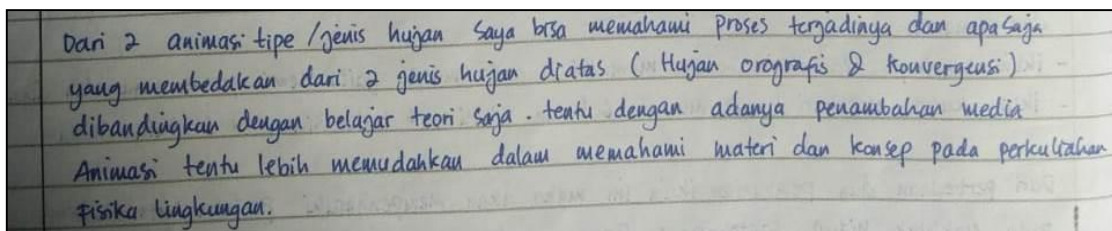 Dari 2 animasi tipe / jenis hujan saya bisa memahami proses terjadinya dan apa saja
yang membedakan dari 2 jenis hujan diatas ( Hujan orografis & Konvergensi )
dibandingkan dengan belajar teori saja. tentu dengan adanya penambahan media
Animasi tentu lebih memudahkan dalam memahami materi dan konsep pada perkuliahan
Fisika Lingkungan.